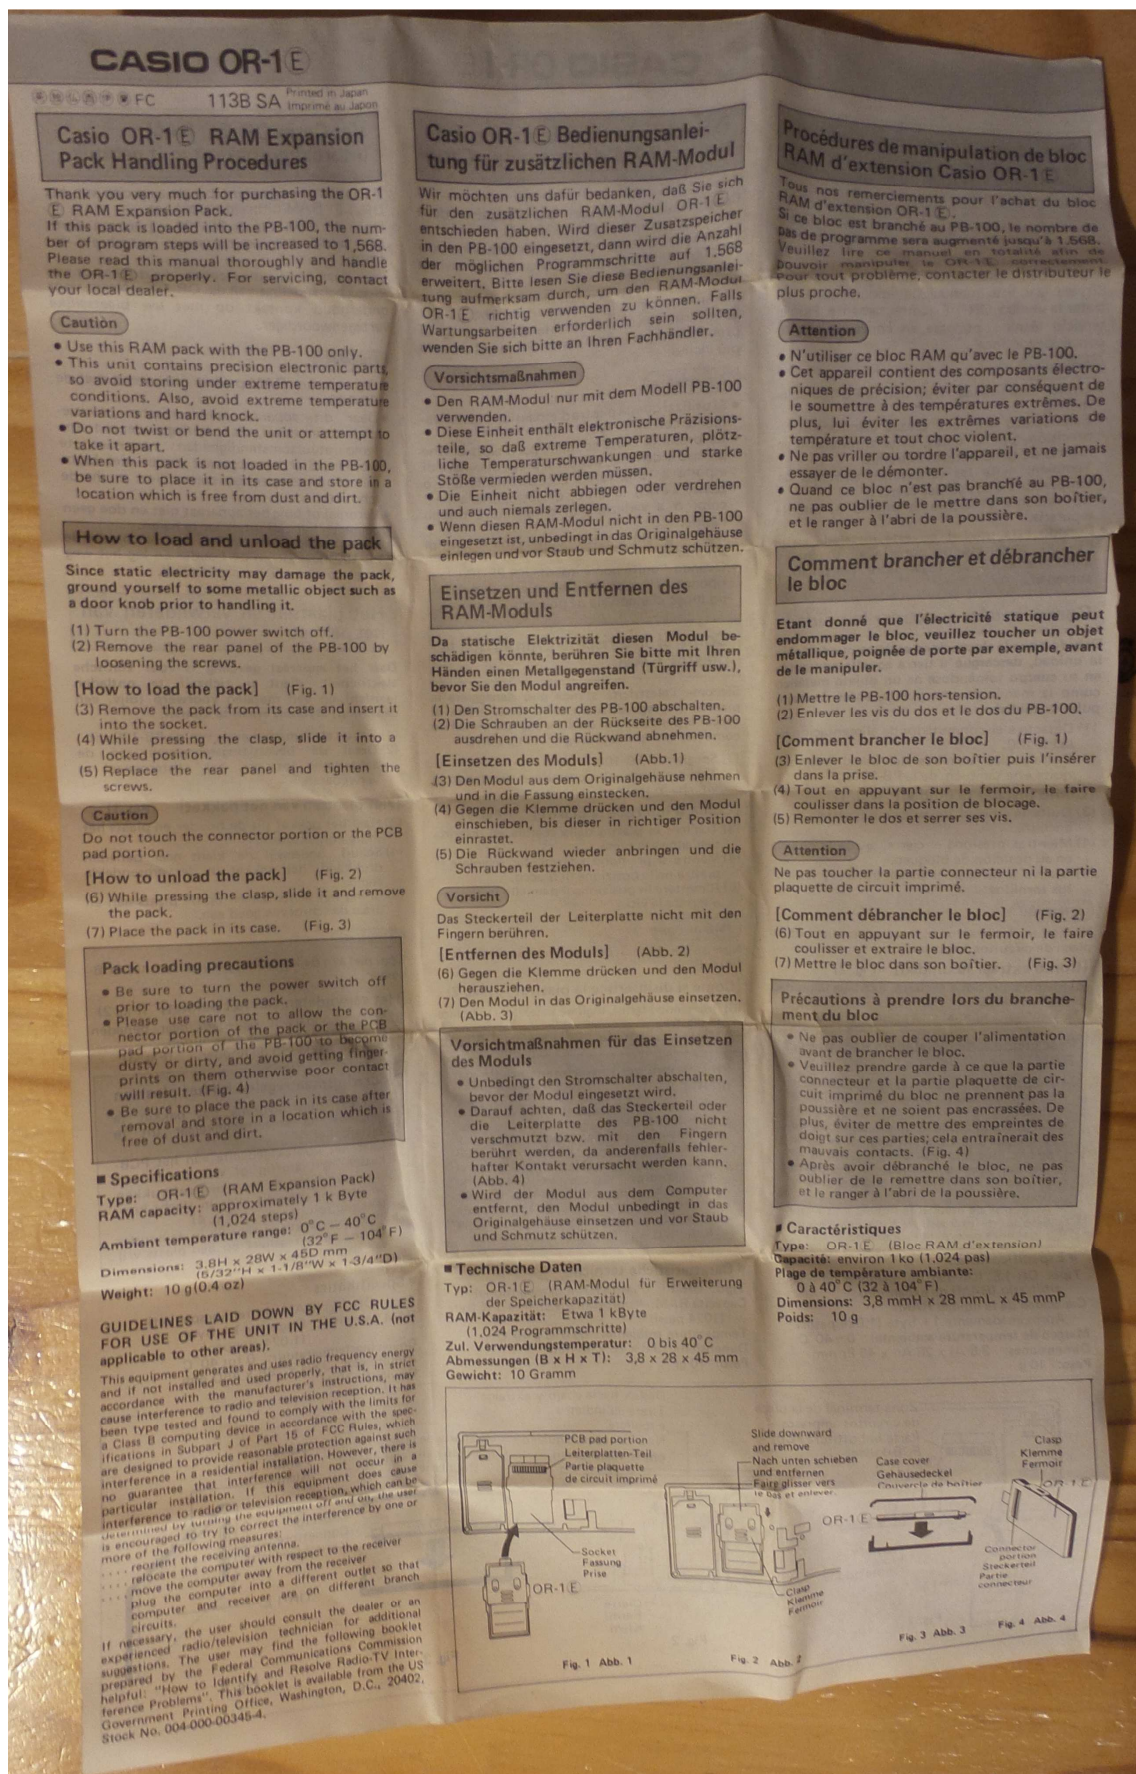 CASIO OR-1 E
FC 113B SA Printed in Japan
Imprimé au Japon
Casio OR-1 E RAM Expansion
Pack Handling Procedures
Thank you very much for purchasing the OR-1
E RAM Expansion Pack.
If this pack is loaded into the PB-100, the num-
ber of program steps will be increased to 1,568.
Please read this manual thoroughly and handle
the OR-1 E properly. For servicing, contact
your local dealer.
Caution
• Use this RAM pack with the PB-100 only.
• This unit contains precision electronic parts,
so avoid storing under extreme temperature
conditions. Also, avoid extreme temperature
variations and hard knock.
• Do not twist or bend the unit or attempt to
take it apart.
• When this pack is not loaded in the PB-100,
be sure to place it in its case and store in a
location which is free from dust and dirt.
How to load and unload the pack
Since static electricity may damage the pack,
ground yourself to some metallic object such as
a door knob prior to handling it.
(1) Turn the PB-100 power switch off.
(2) Remove the rear panel of the PB-100 by
loosening the screws.
[How to load the pack] (Fig. 1)
(3) Remove the pack from its case and insert it
into the socket.
(4) While pressing the clasp, slide it into a
locked position.
(5) Replace the rear panel and tighten the
screws.
Caution
Do not touch the connector portion or the PCB
pad portion.
[How to unload the pack] (Fig. 2)
(6) While pressing the clasp, slide it and remove
the pack.
(7) Place the pack in its case. (Fig. 3)
Pack loading precautions
• Be sure to turn the power switch off
prior to loading the pack.
• Please use care not to allow the con-
nector portion of the pack or the PCB
pad portion of the PB-100 to become
dusty or dirty, and avoid getting finger-
prints on them otherwise poor contact
will result. (Fig. 4)
• Be sure to place the pack in its case after
removal and store in a location which is
free of dust and dirt.
■ Specifications
Type: OR-1 E (RAM Expansion Pack)
RAM capacity: approximately 1 k Byte
(1,024 steps)
Ambient temperature range: 0°C – 40°C
(32°F – 104°F)
Dimensions: 3.8H x 28W x 45D mm
(5/32"H x 1-1/8"W x 1-3/4"D)
Weight: 10 g(0.4 oz)
GUIDELINES LAID DOWN BY FCC RULES
FOR USE OF THE UNIT IN THE U.S.A. (not
applicable to other areas).
This equipment generates and uses radio frequency energy
and if not installed and used properly, that is, in strict
accordance with the manufacturer's instructions, may
cause interference to radio and television reception. It has
been type tested and found to comply with the limits for
a Class B computing device in accordance with the spec-
ifications in Subpart J of Part 15 of FCC Rules, which
are designed to provide reasonable protection against such
interference in a residential installation. However, there is
no guarantee that interference will not occur in a
particular installation. If this equipment does cause
interference to radio or television reception, which can be
determined by turning the equipment off and on, the user
is encouraged to try to correct the interference by one or
more of the following measures:
. . . . reorient the receiving antenna.
. . . . relocate the computer with respect to the receiver
. . . . move the computer away from the receiver
. . . . plug the computer into a different outlet so that
computer and receiver are on different branch
circuits.
If necessary, the user should consult the dealer or an
experienced radio/television technician for additional
suggestions. The user may find the following booklet
prepared by the Federal Communications Commission
helpful: "How to Identify and Resolve Radio-TV Inter-
ference Problems". This booklet is available from the US
Government Printing Office, Washington, D.C., 20402,
Stock No. 004-000-00345-4.
Casio OR-1 E Bedienungsanlei-
tung für zusätzlichen RAM-Modul
Wir möchten uns dafür bedanken, daß Sie sich
für den zusätzlichen RAM-Modul OR-1 E
entschieden haben. Wird dieser Zusatzspeicher
in den PB-100 eingesetzt, dann wird die Anzahl
der möglichen Programmschritte auf 1,568
erweitert. Bitte lesen Sie diese Bedienungsanlei-
tung aufmerksam durch, um den RAM-Modul
OR-1 E richtig verwenden zu können. Falls
Wartungsarbeiten erforderlich sein sollten,
wenden Sie sich bitte an Ihren Fachhändler.
Vorsichtsmaßnahmen
• Den RAM-Modul nur mit dem Modell PB-100
verwenden.
• Diese Einheit enthält elektronische Präzisions-
teile, so daß extreme Temperaturen, plötz-
liche Temperaturschwankungen und starke
Stöße vermieden werden müssen.
• Die Einheit nicht abbiegen oder verdrehen
und auch niemals zerlegen.
• Wenn diesen RAM-Modul nicht in den PB-100
eingesetzt ist, unbedingt in das Originalgehäuse
einlegen und vor Staub und Schmutz schützen.
Einsetzen und Entfernen des
RAM-Moduls
Da statische Elektrizität diesen Modul be-
schädigen könnte, berühren Sie bitte mit Ihren
Händen einen Metallgegenstand (Türgriff usw.),
bevor Sie den Modul angreifen.
(1) Den Stromschalter des PB-100 abschalten.
(2) Die Schrauben an der Rückseite des PB-100
ausdrehen und die Rückwand abnehmen.
[Einsetzen des Moduls] (Abb.1)
(3) Den Modul aus dem Originalgehäuse nehmen
und in die Fassung einstecken.
(4) Gegen die Klemme drücken und den Modul
einschieben, bis dieser in richtiger Position
einrastet.
(5) Die Rückwand wieder anbringen und die
Schrauben festziehen.
Vorsicht
Das Steckerteil der Leiterplatte nicht mit den
Fingern berühren.
[Entfernen des Moduls] (Abb. 2)
(6) Gegen die Klemme drücken und den Modul
herausziehen.
(7) Den Modul in das Originalgehäuse einsetzen.
(Abb. 3)
Vorsichtmaßnahmen für das Einsetzen
des Moduls
• Unbedingt den Stromschalter abschalten,
bevor der Modul eingesetzt wird.
• Darauf achten, daß das Steckerteil oder
die Leiterplatte des PB-100 nicht
verschmutzt bzw. mit den Fingern
berührt werden, da anderenfalls fehler-
hafter Kontakt verursacht werden kann.
(Abb. 4)
• Wird der Modul aus dem Computer
entfernt, den Modul unbedingt in das
Originalgehäuse einsetzen und vor Staub
und Schmutz schützen.
■ Technische Daten
Typ: OR-1 E (RAM-Modul für Erweiterung
der Speicherkapazität)
RAM-Kapazität: Etwa 1 kByte
(1,024 Programmschritte)
Zul. Verwendungstemperatur: 0 bis 40°C
Abmessungen (B x H x T): 3,8 x 28 x 45 mm
Gewicht: 10 Gramm
Procédures de manipulation de bloc
RAM d'extension Casio OR-1 E
Tous nos remerciements pour l'achat du bloc
RAM d'extension OR-1 E.
Si ce bloc est branché au PB-100, le nombre de
pas de programme sera augmenté jusqu'à 1,568.
Veuillez lire ce manuel en totalité afin de
pouvoir manipuler le OR-1 E correctement.
pour tout problème, contacter le distributeur le
plus proche.
Attention
• N'utiliser ce bloc RAM qu'avec le PB-100.
• Cet appareil contient des composants électro-
niques de précision; éviter par conséquent de
le soumettre à des températures extrêmes. De
plus, lui éviter les extrêmes variations de
température et tout choc violent.
• Ne pas vriller ou tordre l'appareil, et ne jamais
essayer de le démonter.
• Quand ce bloc n'est pas branché au PB-100,
ne pas oublier de le mettre dans son boîtier,
et le ranger à l'abri de la poussière.
Comment brancher et débrancher
le bloc
Etant donné que l'électricité statique peut
endommager le bloc, veuillez toucher un objet
métallique, poignée de porte par exemple, avant
de le manipuler.
(1) Mettre le PB-100 hors-tension.
(2) Enlever les vis du dos et le dos du PB-100.
[Comment brancher le bloc] (Fig. 1)
(3) Enlever le bloc de son boîtier puis l'insérer
dans la prise.
(4) Tout en appuyant sur le fermoir, le faire
coulisser dans la position de blocage.
(5) Remonter le dos et serrer ses vis.
Attention
Ne pas toucher la partie connecteur ni la partie
plaquette de circuit imprimé.
[Comment débrancher le bloc] (Fig. 2)
(6) Tout en appuyant sur le fermoir, le faire
coulisser et extraire le bloc.
(7) Mettre le bloc dans son boîtier. (Fig. 3)
Précautions à prendre lors du branche-
ment du bloc
• Ne pas oublier de couper l'alimentation
avant de brancher le bloc.
• Veuillez prendre garde à ce que la partie
connecteur et la partie plaquette de cir-
cuit imprimé du bloc ne prennent pas la
poussière et ne soient pas encrassées. De
plus, éviter de mettre des empreintes de
doigt sur ces parties; cela entraînerait des
mauvais contacts. (Fig. 4)
• Après avoir débranché le bloc, ne pas
oublier de le remettre dans son boîtier,
et le ranger à l'abri de la poussière.
■ Caractéristiques
Type: OR-1 E (Bloc RAM d'extension)
Capacité: environ 1 ko (1,024 pas)
Plage de température ambiante:
0 à 40°C (32 à 104°F)
Dimensions: 3,8 mmH x 28 mmL x 45 mmP
Poids: 10 g
PCB pad portion
Leiterplatten-Teil
Partie plaquette
de circuit imprimé
Socket
Fassung
Prise
OR-1 E
Fig. 1 Abb. 1
Slide downward
and remove
Nach unten schieben
und entfernen
Faire glisser vers
le bas et enlever.
Clasp
Klemme
Fermoir
Fig. 2 Abb. 2
Case cover
Gehäusedeckel
Couvercle de boîtier
OR-1 E
Fig. 3 Abb. 3
Clasp
Klemme
Fermoir
OR-1 E
Connector
portion
Steckerteil
Partie
connecteur
Fig. 4 Abb. 4